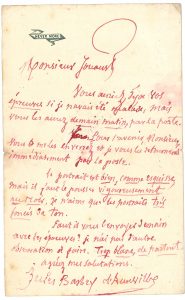 NEVER MORE
Monsieur Jouaust
Vous auriez eu hier vos
épreuves si je n'avais été malade, mais
vous les aurez demain matin, par la poste.
Monsieur,
vous les et je vous les retournerai
immédiatement par la poste.
Le portrait est bien, comme esquisse
mais il faut le pousser vigoureusement
au noir, je n'aime que les portraits
de ton.
Faut-il vous l'envoyer demain
avec les épreuves? je n'ai pas d'autre
observation à faire. Trop blanc, de partout
agréez mes salutations.
Jules Barbey d'Aurevilly